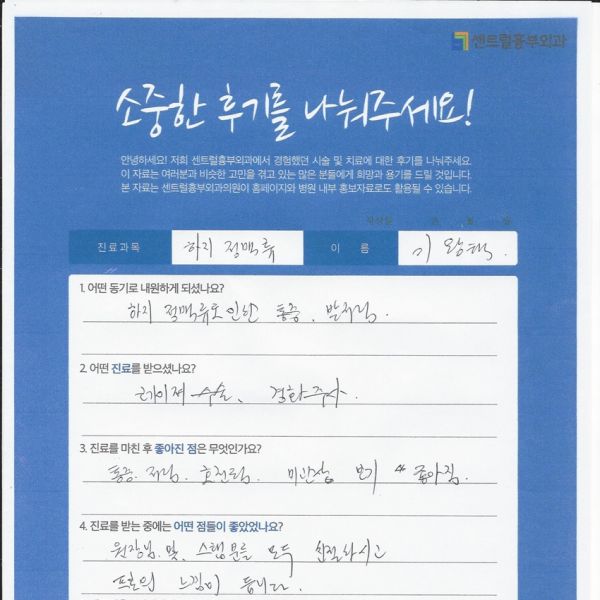 센트럴흉부외과
소중한 후기를 나눠주세요!
안녕하세요! 저희 센트럴흉부외과에서 경험했던 시술 및 치료에 대한 후기를 나눠주세요.
이 자료는 여러분과 비슷한 고민을 겪고 있는 많은 분들에게 희망과 용기를 드릴 것입니다.
본 자료는 센트럴흉부외과의원이 홈페이지와 병원 내부 홍보자료로도 활용될 수 있습니다.
작성일 년 월 일
진료과목 하지 정맥류 이 름
1. 어떤 동기로 내원하게 되셨나요?
하지 정맥류로 인한 통증. 발저림.
2. 어떤 진료를 받으셨나요?
레이저 수술. 경화주사.
3. 진료를 마친 후 좋아진 점은 무엇인가요?
통증. 저림. 호전됨. 미관상 보기 좋아짐.
4. 진료를 받는 중에는 어떤 점들이 좋았었나요?
원장님 및 스탭분들 모두 친절하시고
프로의 느낌이 듭니다.